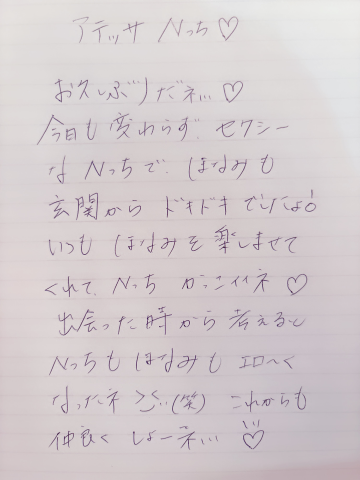 アテッサ Nっち♡
お久しぶりだネ!!!♡
今日も変わらず、セクシー
な Nっちで、ほなみも
玄関から ドキドキ でしたよ!
いつも ほなみを楽しませて
くれて、Nっち かっこイイネ♡
出会った時から 考えると
Nっちも ほなみも エロ〜く
なったネ (笑) これからも
仲良く しよーネ!!! ♡